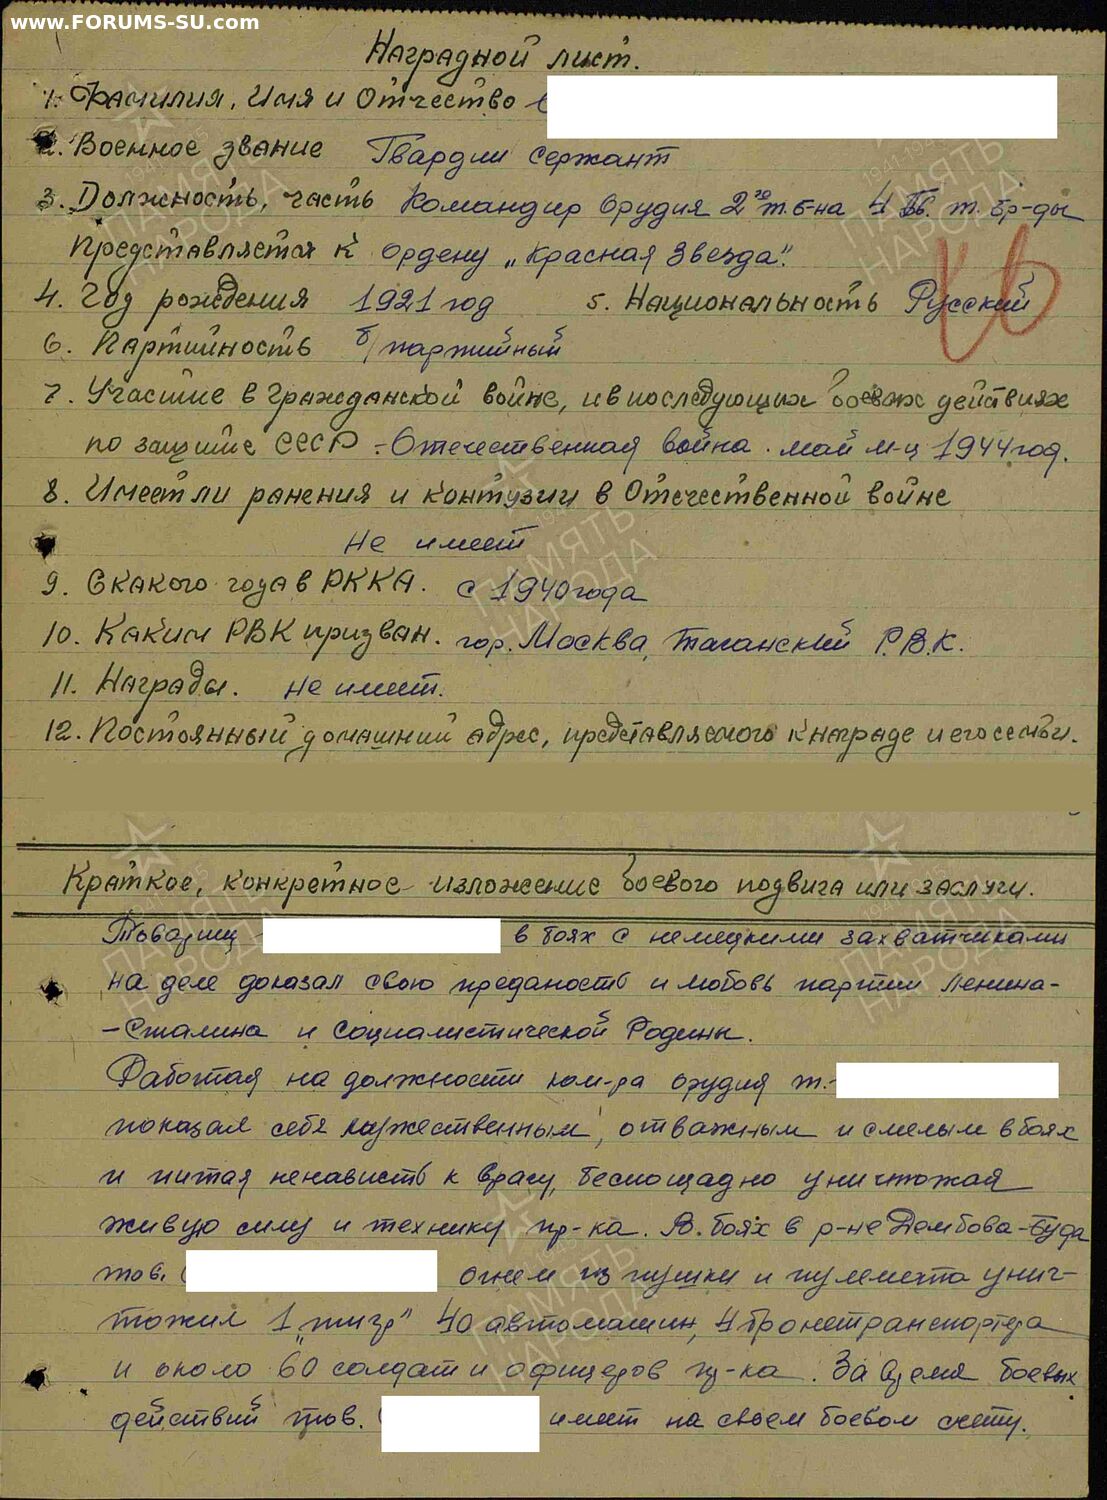 www.FORUMS-SU.com
Наградной лист.
1. Фамилия, Имя и Отчество
2. Военное звание Гвардии сержант
3. Должность, часть Командир орудия 2го т. б-на 4 Гв. т. бр-ды
Представляется к ордену „Красная Звезда".
4. Год рождения 1921 год 5. Национальность Русский
6. Партийность б/партийный
7. Участие в Гражданской войне, и в последующих боевых действиях
по защите СССР - Отечественная война. май м-ц 1944 год.
8. Имеет ли ранения и контузии в Отечественной войне
Не имеет
9. С какого года в РККА. с 1940 года
10. Каким РВК призван. гор. Москва, Таганский Р.В.К.
11. Награды. не имеет.
12. Постоянный домашний адрес, представляемого к награде и его семьи.
Краткое, конкретное изложение боевого подвига или заслуги.
Товарищ в боях с немецкими захватчиками
на деле доказал свою преданость и любовь партии Ленина-
-Сталина и социалистической Родины.
Работая на должности ком-ра орудия т.
показал себя мужественным, отважным и смелым в боях
и питая ненависть к врагу, беспощадно уничтожая
живую силу и технику пр-ка. В боях в р-не Дембова-Буда
тов. огнем из пушки и пулемета унич-
тожил 1 „тигр" 40 автомашин, 4 бронетранспортера
и около 60 солдат и офицеров пр-ка. За время боевых
действий тов. имеет на своем боевом счету.
ПАМЯТЬ НАРОДА
1941 1945